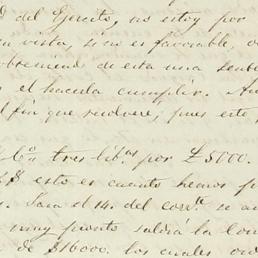 del Ejército, no estoy por
vista, si no es favorable,
de esta una
el hacerla cumplir.
fin que resolvere, pues este
tres lib.as por £5000.
esto es cuanto hemos
Para el 14. del corr.te se
muy pronto saldrá la
de $16000. los cuales